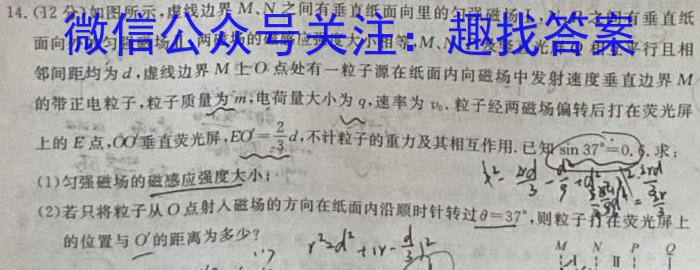 14.(12分)如图所示,虚线边界M、N之间有垂直纸面向里的匀强磁场 之间有垂直纸
微信公众号关注:趣找答案
面向 匀强磁场 两磁场的磁感应强度大小相等,M、N 光屏 平行且相
邻间距均为d,虚线边界M上O点处有一粒子源在纸面内向磁场中发射速度垂直边界M
的带正电粒子,粒子质量为m,电荷量大小为q,速率为v₀.粒子经两磁场偏转后打在荧光屏
上的E点,OO′垂直荧光屏,EO′=2/3d,不计粒子的重力及其相互作用.已知sin37°=0.6.求:
(1)匀强磁场的磁感应强度大小;
(2)若只将粒子从O点射入磁场的方向在纸面内沿顺时针转过θ=37°,则粒子打在荧光屏上
的位置与O′的距离为多少?
M N P Q
I II